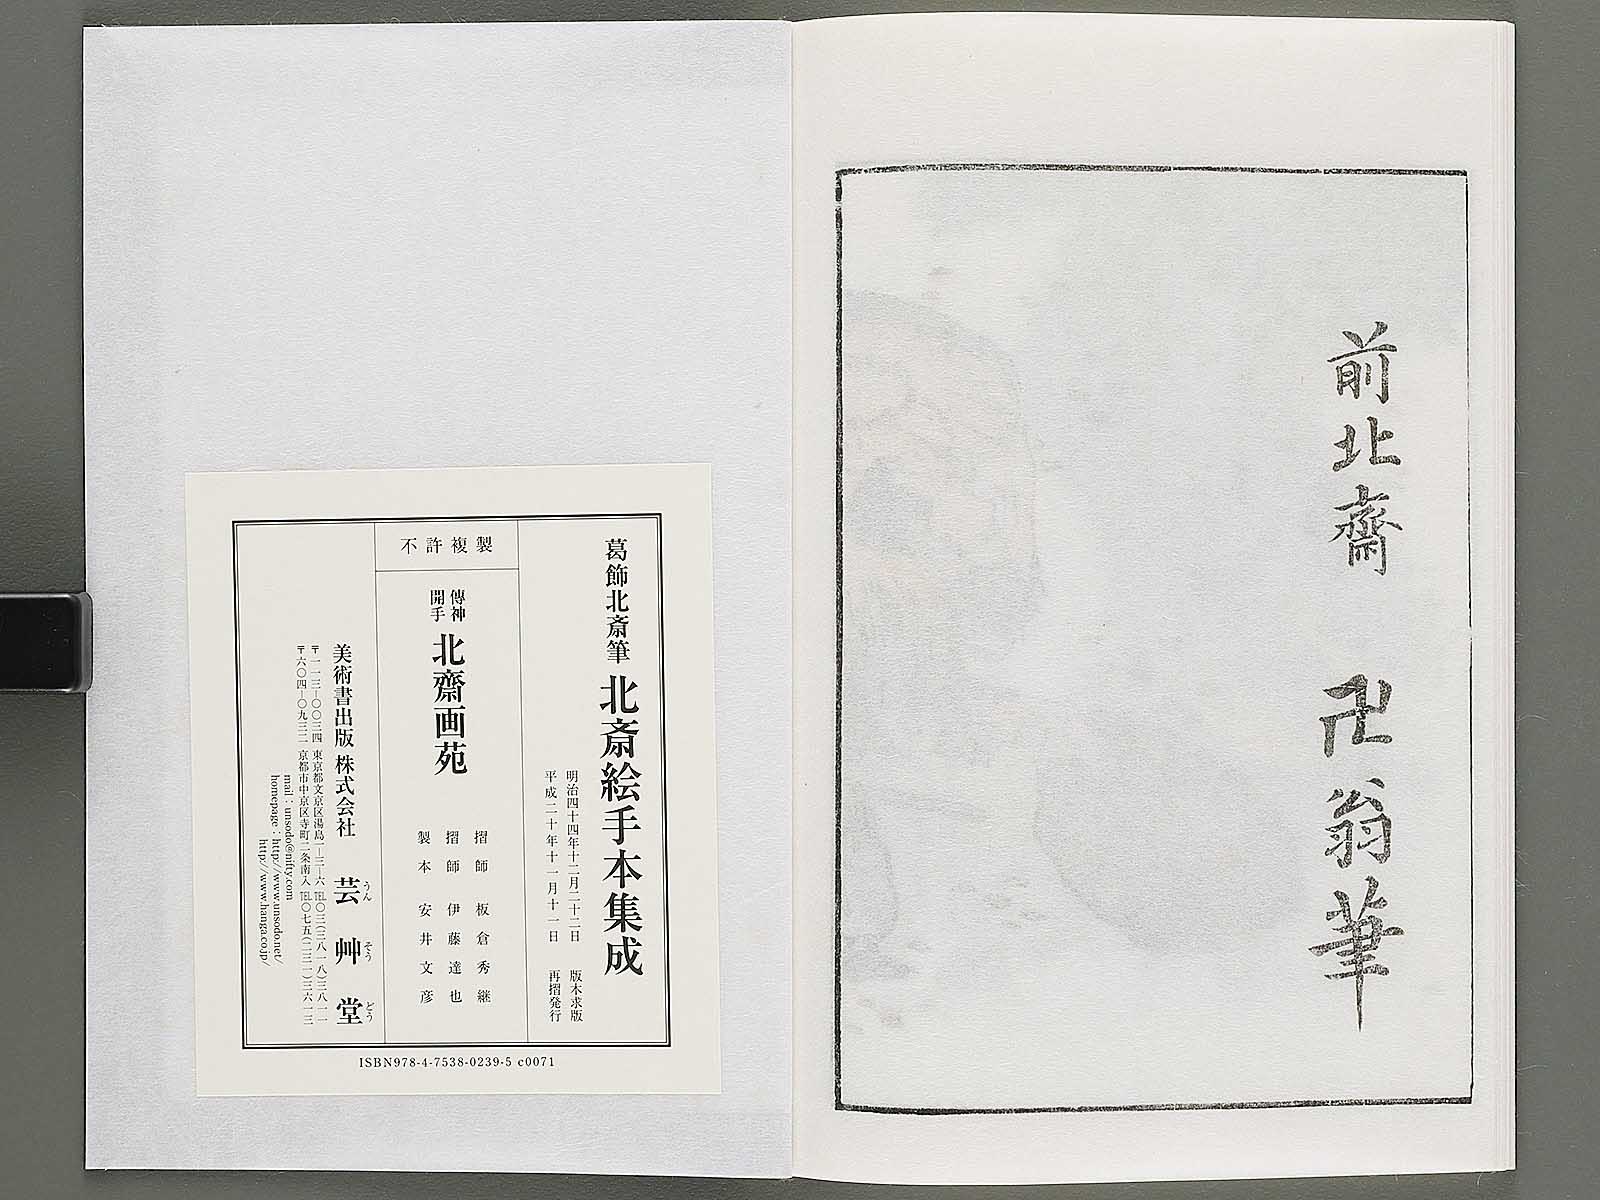 前北齋 卍翁筆
葛飾北斎筆 北斎絵手本集成
明治四十四年十二月二十二日 版木求版
平成二十年十一月十一日 再摺発行
不許複製
傳神
開手
北齋画苑
摺師 板倉秀継
摺師 伊藤達也
製本 安井文彦
美術書出版 株式会社 芸艸堂
うんそうどう
〒一一三―〇〇三四 東京都文京区湯島一―三―六 TEL〇三(三八一八)三八一一
〒六〇四―〇九三二 京都市中京区寺町二条南入 TEL〇七五(二三一)三六一三
mail : unsodo@nifty.com
homepage : http://www.unsodo.net/
http://www.hanga.co.jp/
ISBN978-4-7538-0239-5 c0071